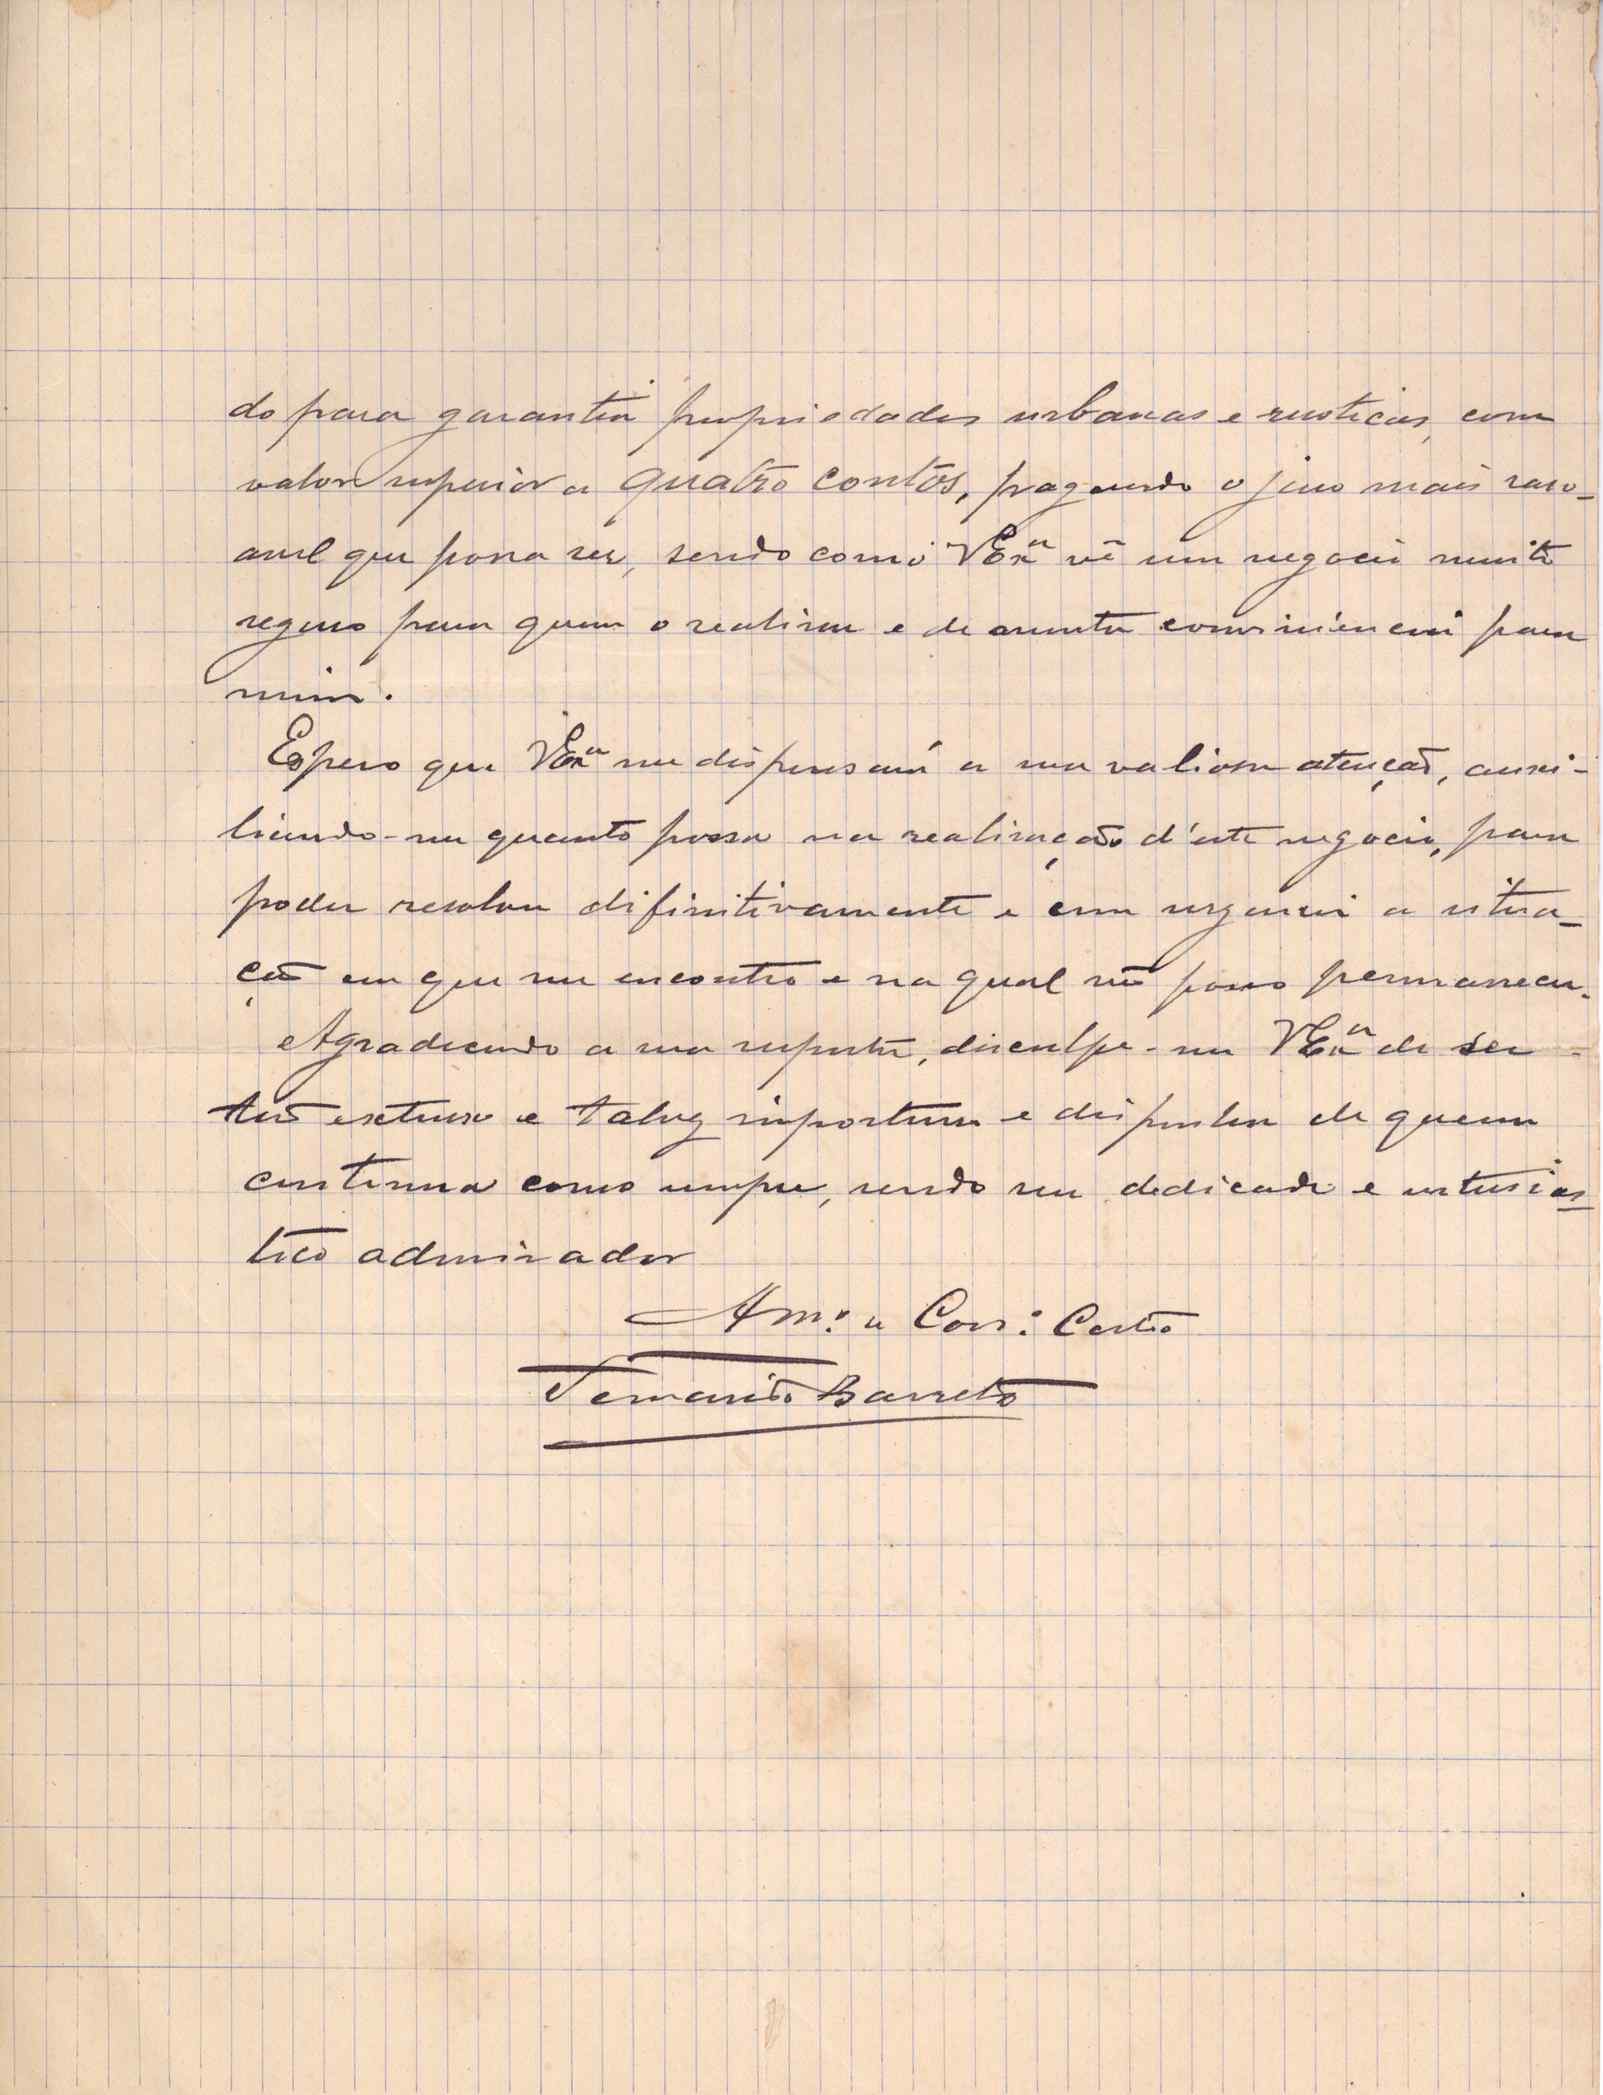 do para garantia propriedades urbanas e rusticas, com
valor superior a quatro contos, pagando o juro mais raso-
avel que possa ser, sendo como VExª vê um negocio muito
seguro para quem o realisar e de muita conviniencia para
mim.
Espero que VExª me dispensará a sua valiosa atenção, auxi-
liando-me quanto possa na realisação d'este negocio, para
poder resolver difinitivamente e com urgencia a situa-
ção em que me encontro e na qual não posso permanecer.
Agradecendo a sua resposta, disculpe-me VExª de ser
tão extenso e talvez importuno e disponha de quem
continua como sempre, sendo seu dedicado e entusias
tico admirador
Amº e Corrº Certo
Fernando Barreto